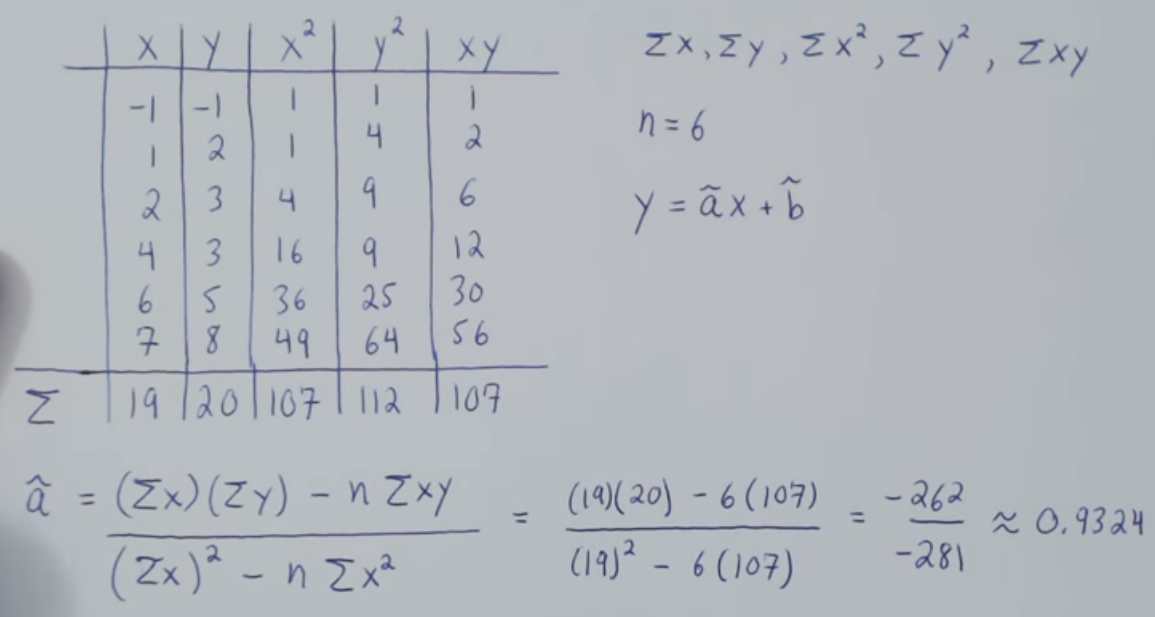 x y x² y² xy
-1 -1 1 1 1
1 2 1 4 2
2 3 4 9 6
4 3 16 9 12
6 5 36 25 30
7 8 49 64 56
Σ 19 20 107 112 107
Σx, Σy, Σx², Σy², Σxy
n = 6
y = ãx + b̃
â = (Σx)(Σy) - nΣxy / (Σx)² - nΣx² = (19)(20) - 6(107) / (19)² - 6(107) = -262 / -281 ≈ 0.9324